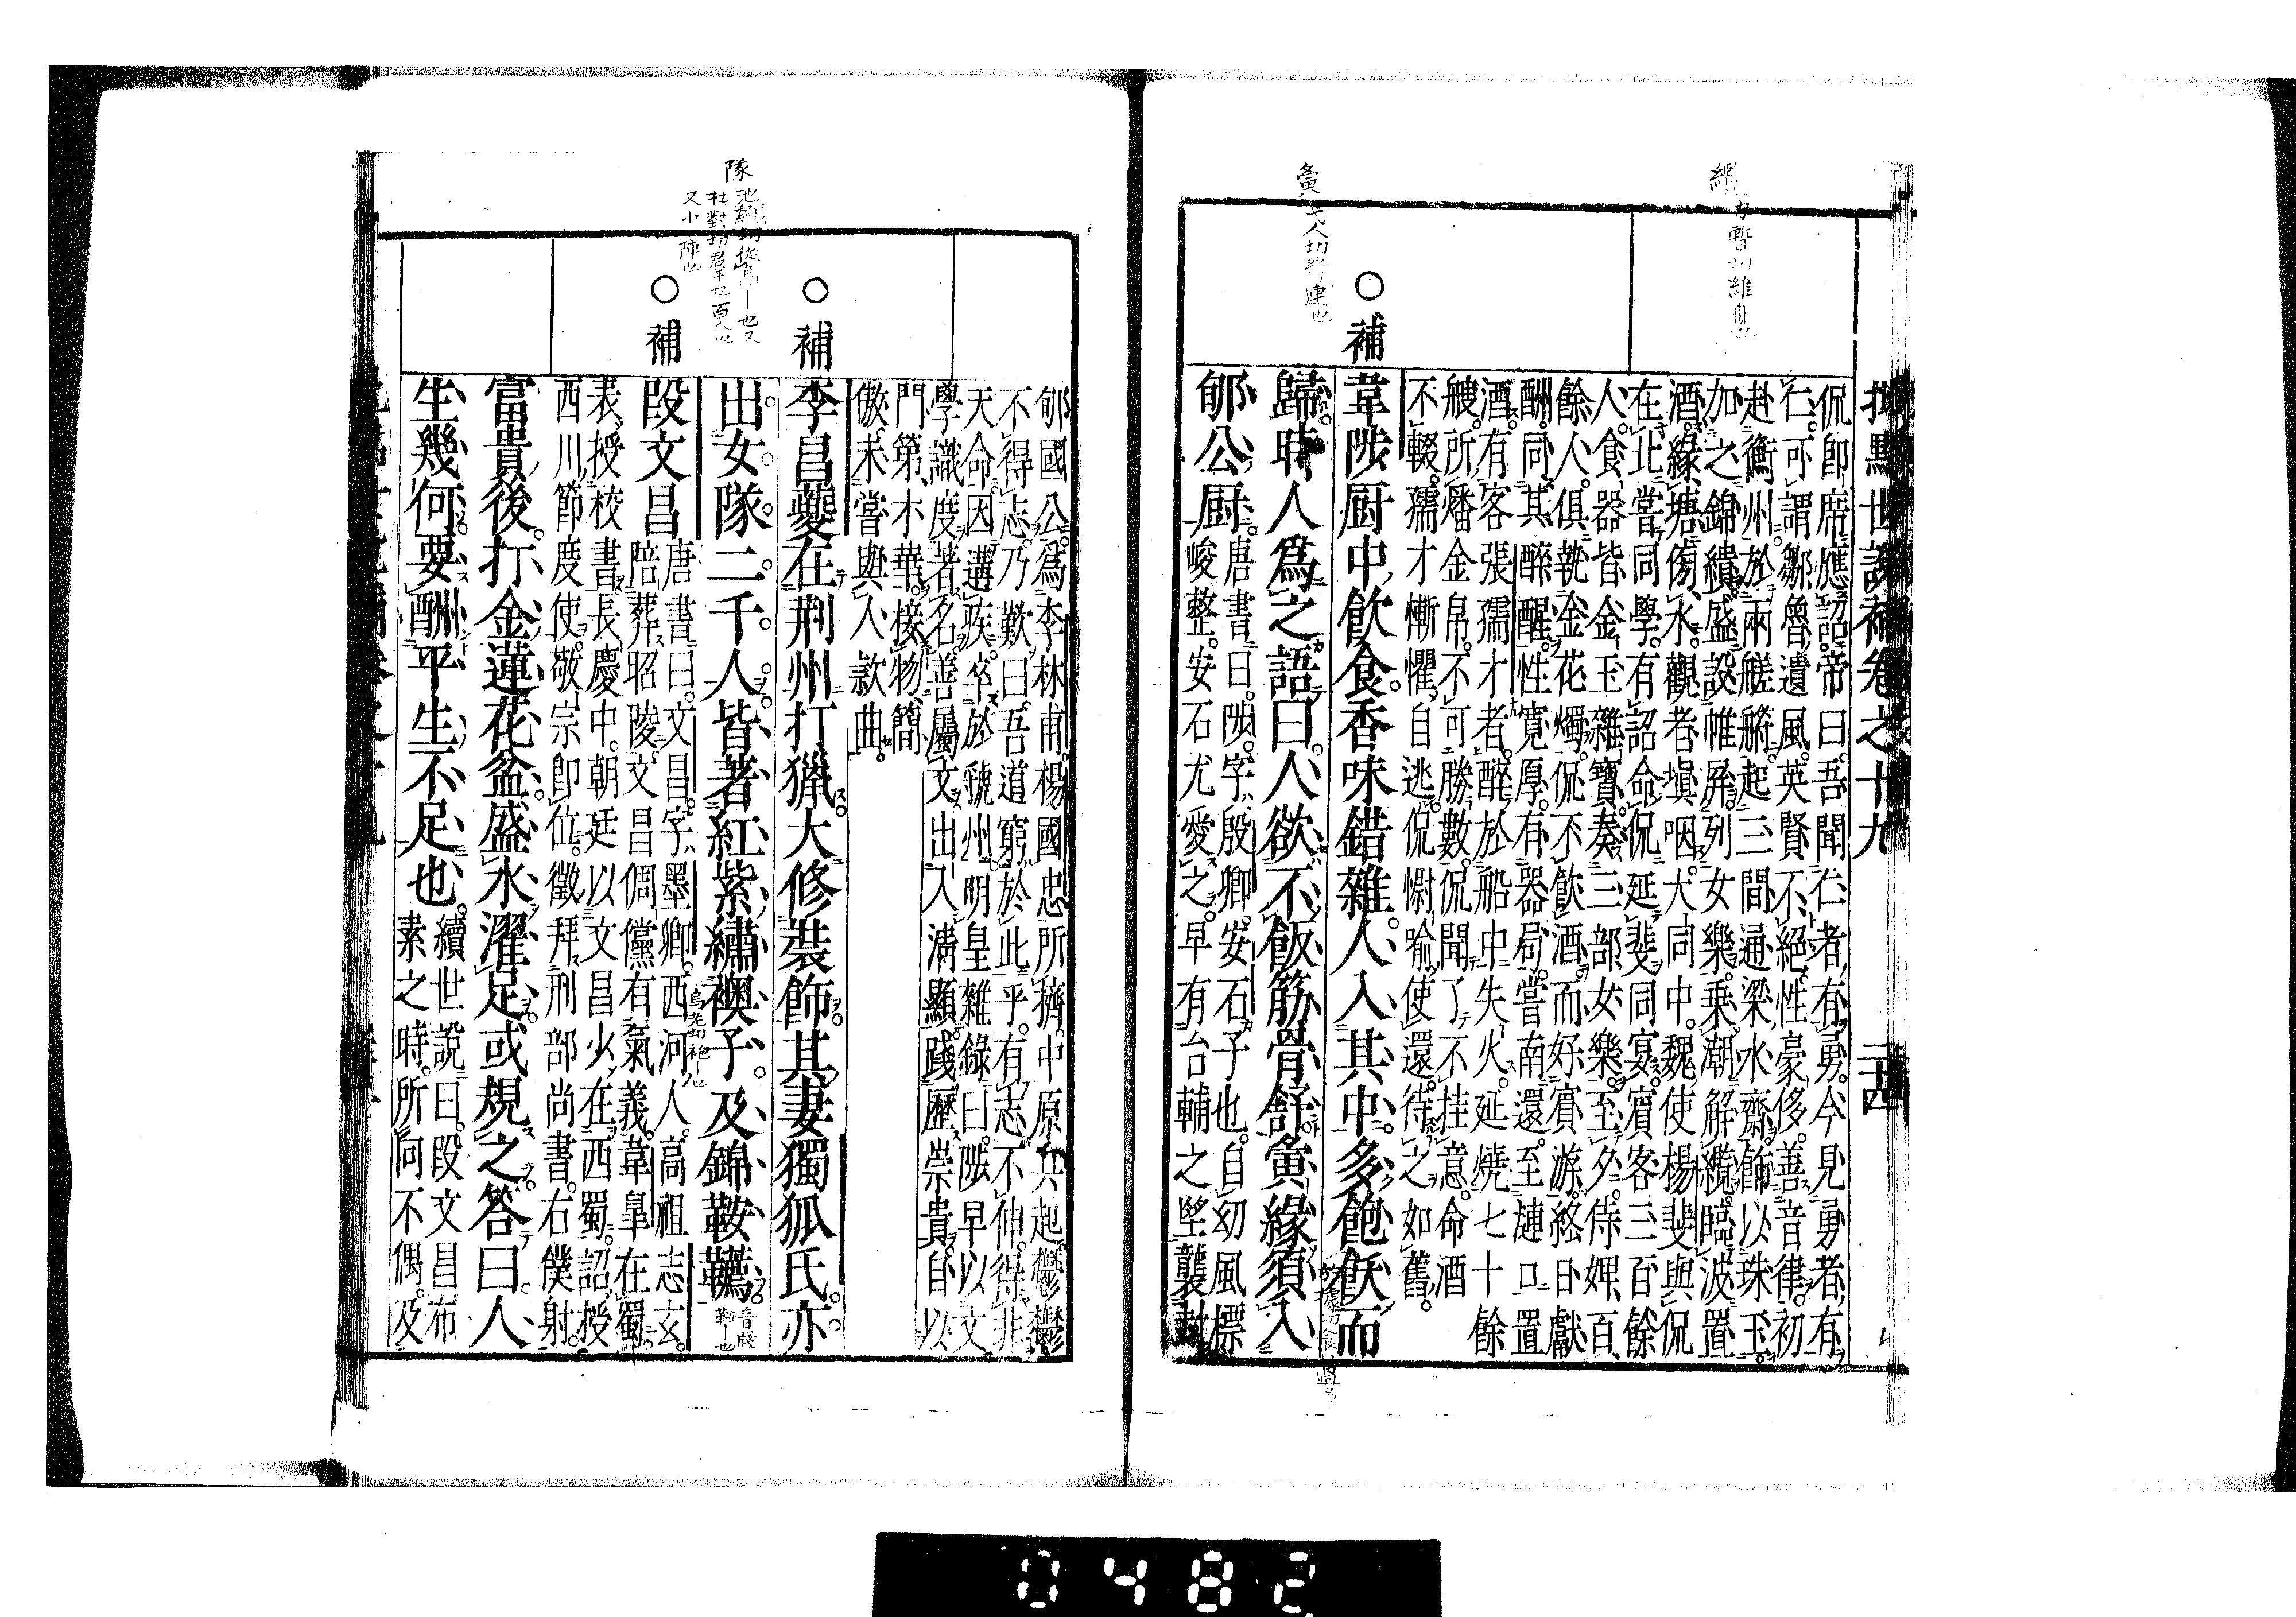 批點世說補卷之十九 二十四
侃即席應詔帝曰吾聞仁者有勇今見勇者有
仁可謂鄒魯遺風英賢不絕性豪侈善音律初
赴衡州於兩艖䑰起三間通梁水齋飾以珠玉
加之錦繢盛設帷屏列女樂乘潮解纜臨波置
酒緣塘傍水觀者塡咽大同中魏使楊斐與侃
在北嘗同學有詔命侃延斐同宴賓客三百餘
人食器皆金玉雜寶奏三部女樂至夕侍婢百
餘人俱執金花燭侃不飲酒而好賓游終日獻
酬同其醉醒性寬厚有器局嘗南還至漣口置
酒有客張孺才者醉於船中失火延燒七十餘
艘所燔金帛不可勝數侃聞了不挂意命酒
不輟孺才慚懼自逃侃慰喻使還待之如舊
○補
韋陟厨中飲食香味錯雜人入其中多飽飫而
歸時人爲之語曰人欲不飯筋骨舒夤緣須入
郇公厨
唐書曰陟字殷卿安石子也自幼風標
峻整安石尤愛之早有台輔之望襲封
郇國公爲李林甫楊國忠所擠中原兵起鬱鬱
不得志乃歎曰吾道窮於此乎有志不伸得非
天命因遘疾卒於虢州明皇雜錄曰陟早以文
學識度著名善屬文出入清顯踐歷崇貴自以
門第才華接物簡
傲未嘗與人款曲
○補
李昌夔在荆州打獵大修裝飾其妻獨狐氏亦
出女隊二千人皆著紅紫繡襖子及錦鞍韉
○補
段文昌
唐書曰文昌字墨卿西河人高祖志玄
陪葬昭陵文昌倜儻有氣義韋皐在蜀
表授校書長慶中朝廷以文昌少在西蜀詔授
西川節度使敬宗即位徵拜刑部尚書右僕射
富貴後打金蓮花盆盛水濯足或規之答曰人
生幾何要酬平生不足也
續世說曰段文昌布
素之時所向不偶及